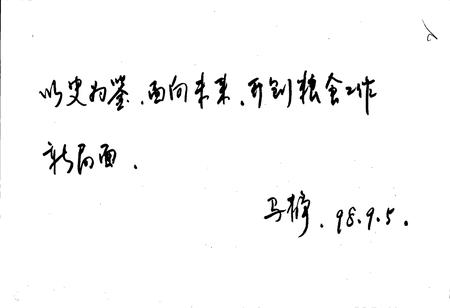 以史为鉴、面向未来、开创粮食工作
新局面.
马 98.9.5.